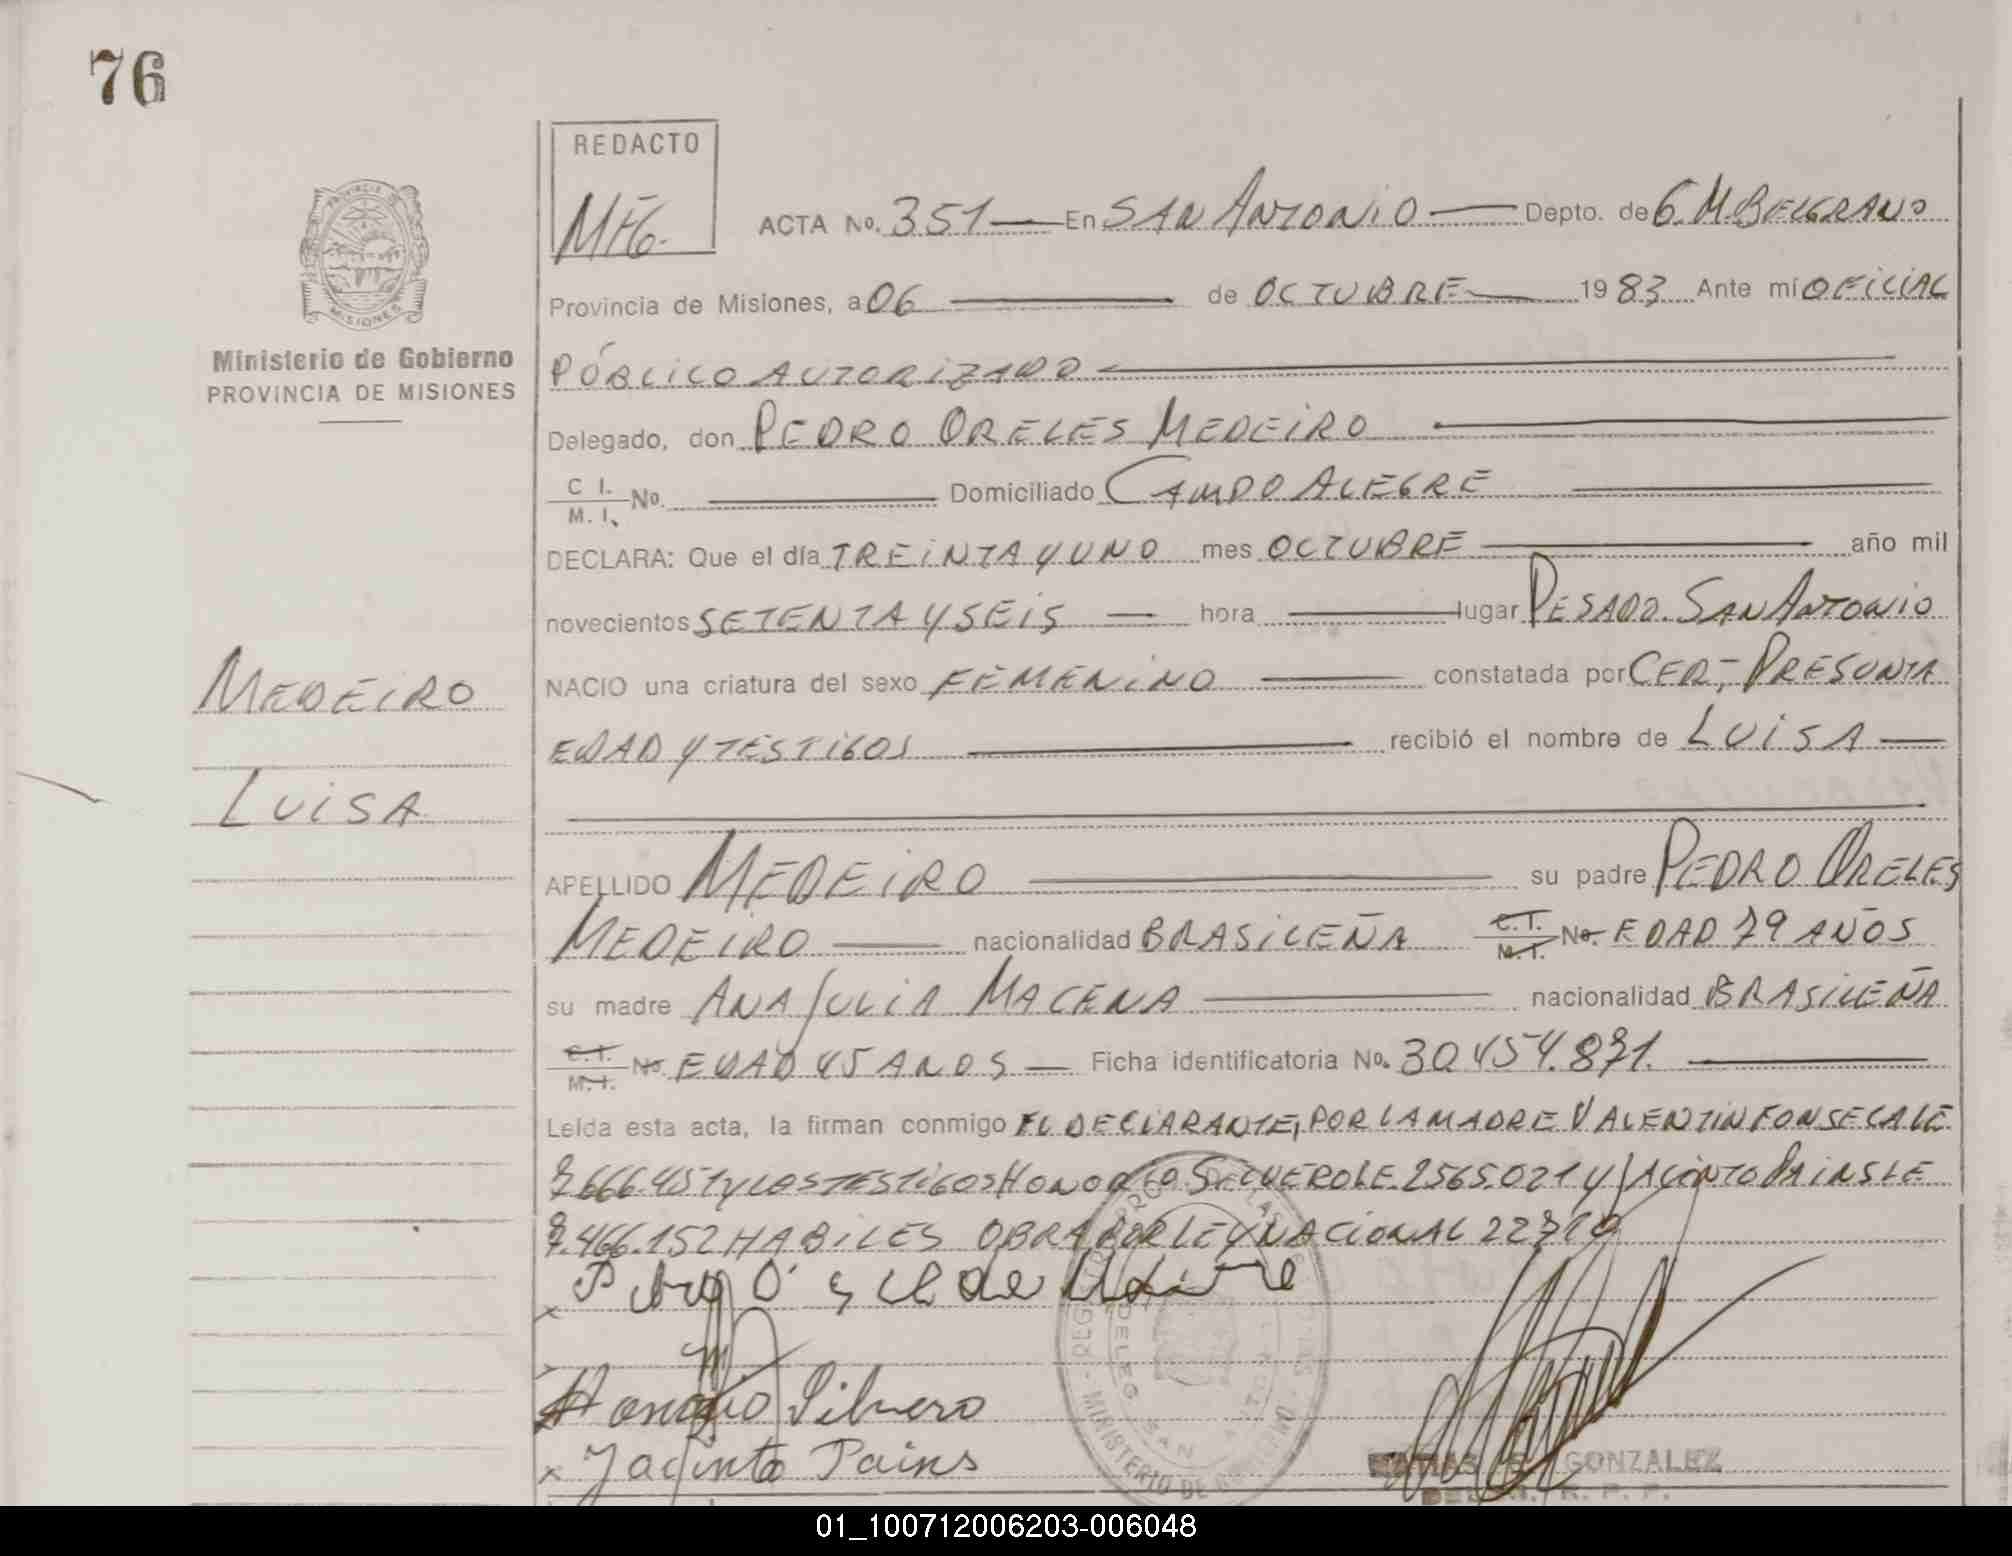 76
REDACTO
MFG.
ACTA No. 351 — En SAN ANTONIO — Depto. de G. M. BELGRANO
Provincia de Misiones, a 06 — de OCTUBRE — 1983 Ante mí OFICIAL
PÚBLICO AUTORIZADO —
Delegado, don PEDRO ORELES MEDEIRO —
C I.
M. I. No. — Domiciliado CAMPO ALEGRE —
DECLARA: Que el día TREINTA Y UNO mes OCTUBRE — año mil
novecientos SETENTA Y SEIS — hora — lugar PESADO. SAN ANTONIO
NACIO una criatura del sexo FEMENINO — constatada por CER, PRESUNTA
EDAD Y TESTIGOS — recibió el nombre de LUISA —
APELLIDO MEDEIRO — su padre PEDRO ORELES
MEDEIRO — nacionalidad BRASILEÑA C.I. M.I. No. EDAD 79 AÑOS
su madre ANA JULIA MACENA — nacionalidad BRASILEÑA
C.I. M.I. No. EDAD 45 AÑOS — Ficha identificatoria No. 30.454.871. —
Leída esta acta, la firman conmigo EL DECLARANTE, POR LA MADRE VALENTIN FONSECA LE
7.666.451 y LOS TESTIGOS HONORIO SILVERO LE. 2565.021 Y JACINTO PAINS LE
7.466.152 HABILES OBRA POR LEY NACIONAL 22710
Honorio Silvero
x Jacinto Pains
GONZALEZ
PROVINCIA DE
MISIONES
Ministerio de Gobierno
PROVINCIA DE MISIONES
MEDEIRO
LUISA
MINISTERIO DE GOBIERNO
DELEG. SAN ANTONIO
01_100712006203-006048